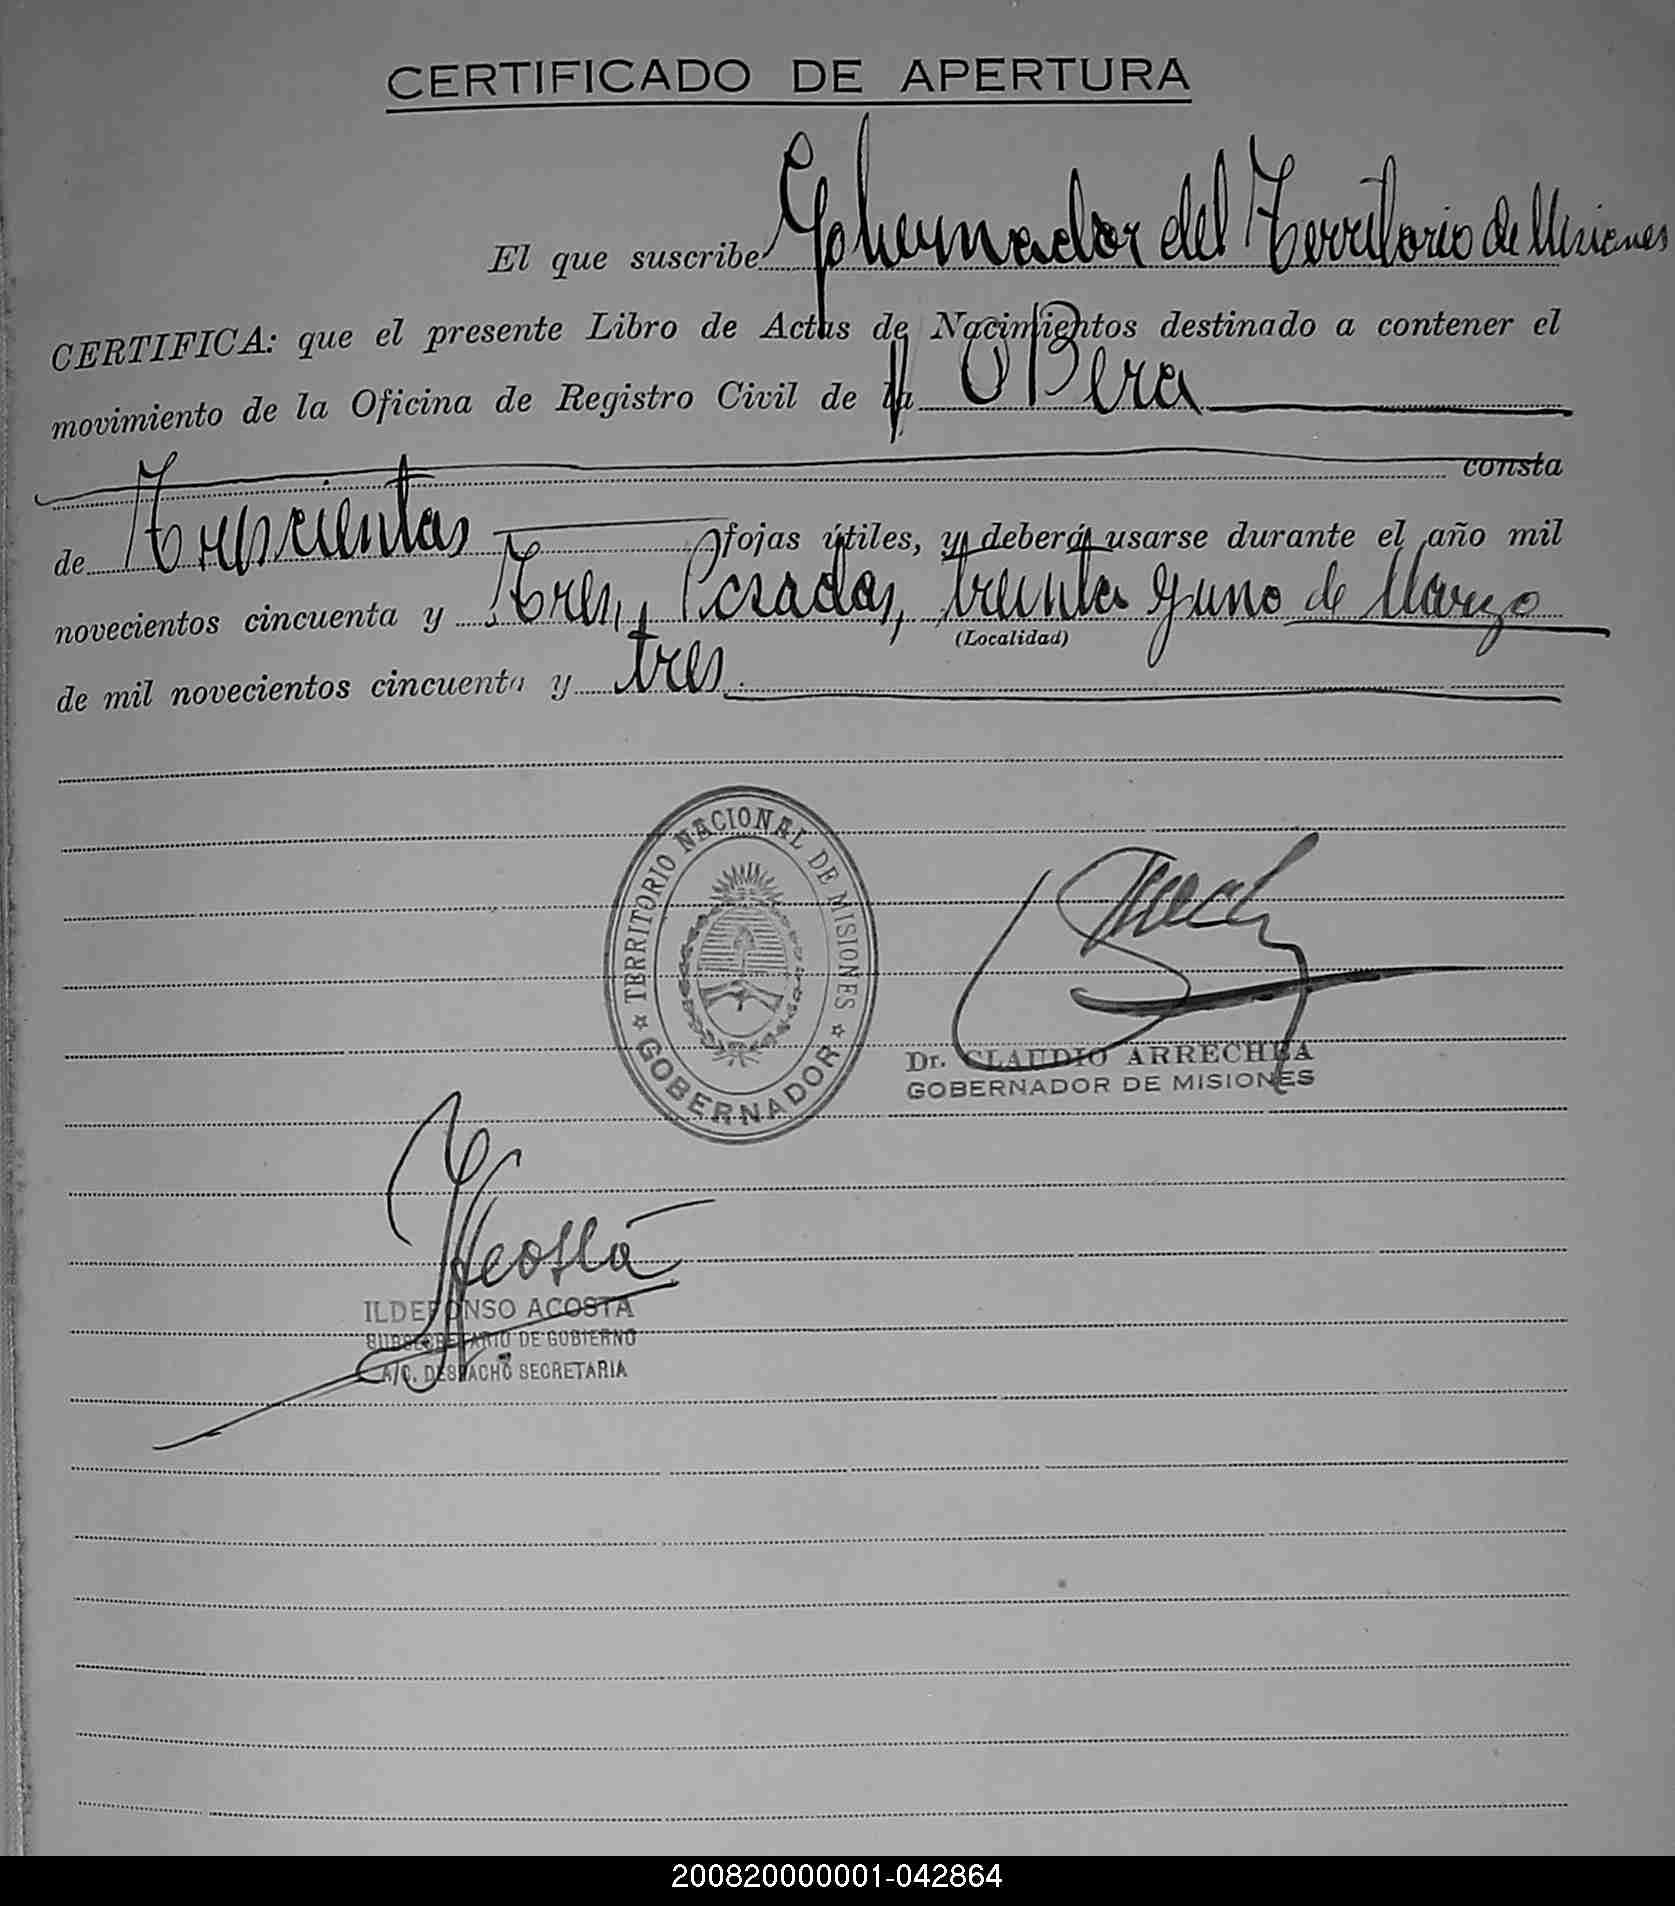 CERTIFICADO DE APERTURA
El que suscribe Gobernador del Territorio de Misiones
CERTIFICA: que el presente Libro de Actas de Nacimientos destinado a contener el
movimiento de la Oficina de Registro Civil de la OBera
consta
de Trescientas fojas útiles, y deberá usarse durante el año mil
novecientos cincuenta y Tres, Posadas, treinta y uno de Marzo
(Localidad)
de mil novecientos cincuenta y tres
TERRITORIO NACIONAL DE MISIONES
GOBERNADOR
Dr. CLAUDIO ARRECHEA
GOBERNADOR DE MISIONES
Acosta
ILDEFONSO ACOSTA
SUBSECRETARIO DE GOBIERNO
A/C. DESPACHO SECRETARIA
200820000001-042864